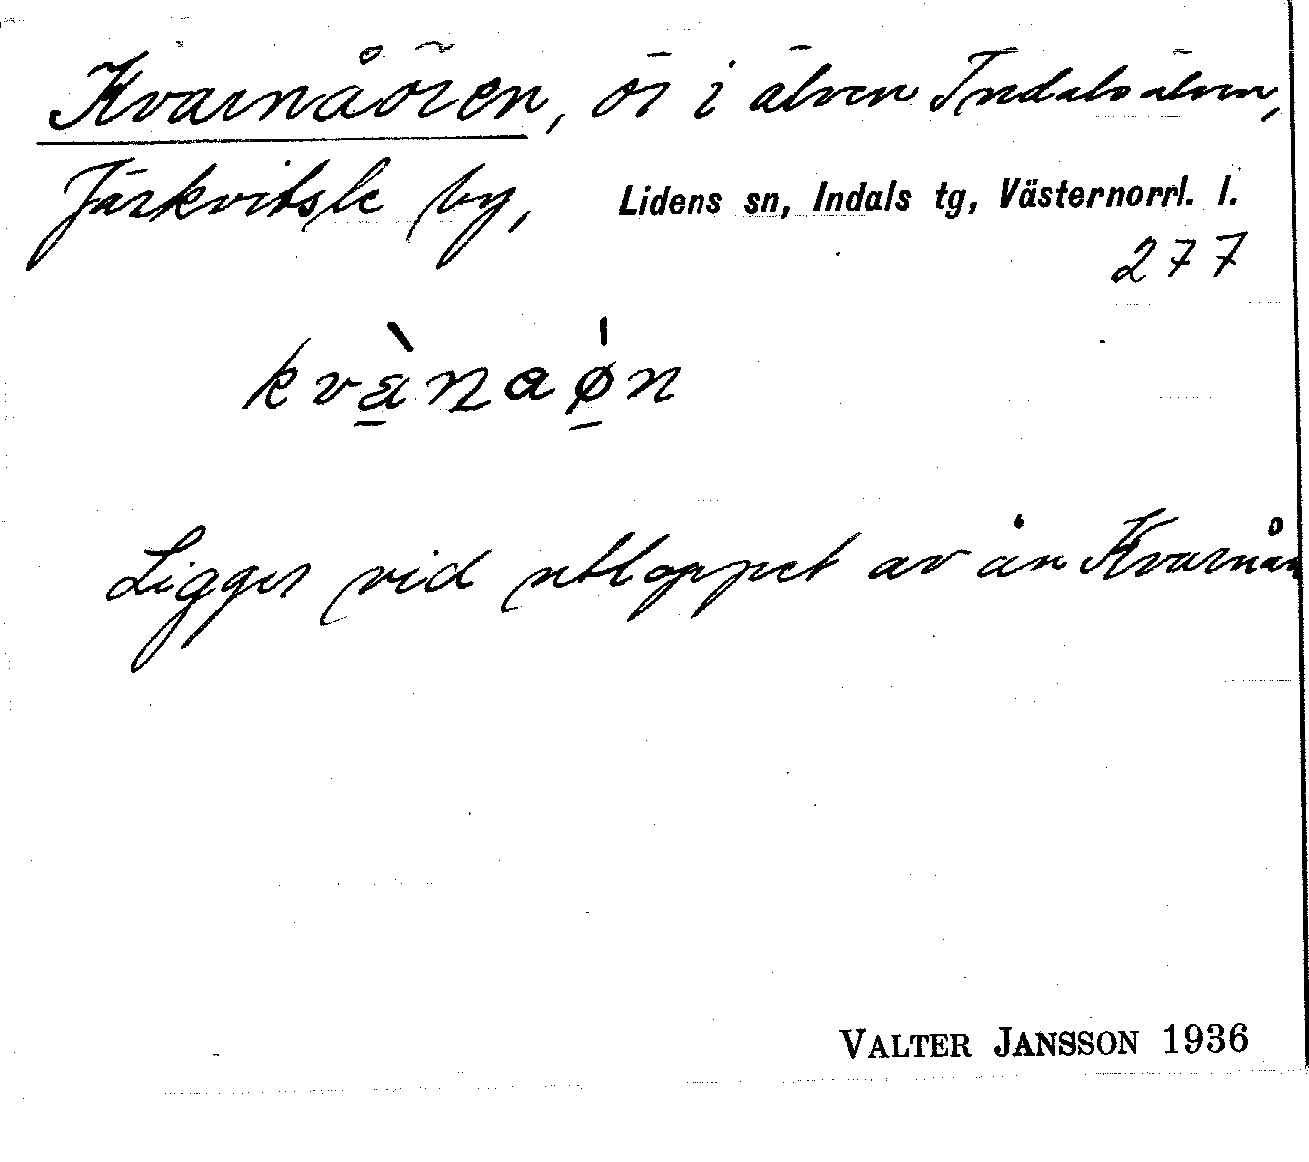 Kvarnåören, ör i älven Indalsälven,
Järkvitsle by, Lidens sn, Indals tg, Västernorrl. l.
277
kvà̱naø̱̍n
Ligger vid utloppet av ån Kvarnån
VALTER JANSSON 1936